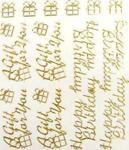 A Gift
for You
A Gift
for You
A Gift
for You
A Gift
for You
Happy
Birthday
Happy
Birthday
Happy
Birthday
Happy
Birthday